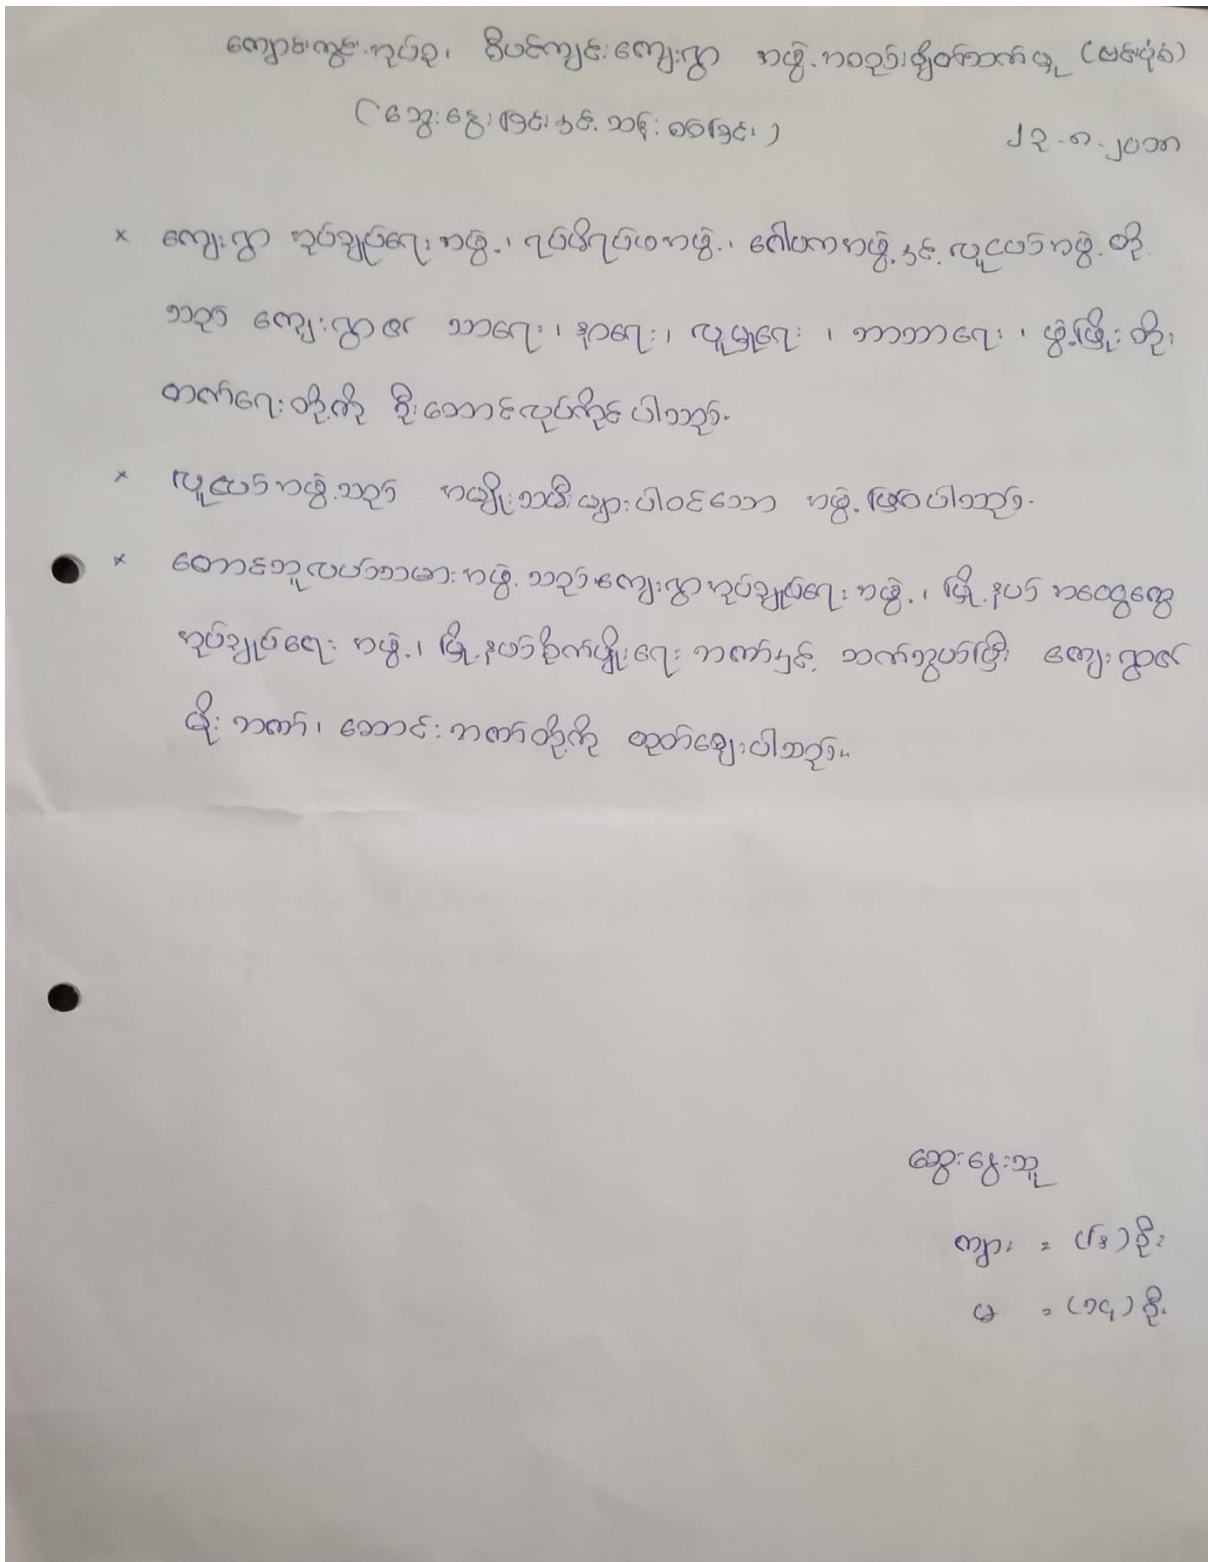 ကျောင်းကွင်းအုပ်စု၊ စီပင်ကျင်းကျေးရွာ အဖွဲ့အစည်းချိတ်ဆက်မှု (မြေပုံ)
(ဆွေးနွေးခြင်းနှင့် သန်းစစ်ခြင်း)
၂၃-၈-၂၀၁၈
× ကျေးရွာ အုပ်ချုပ်ရေးအဖွဲ့၊ ရပ်မိရပ်ဖအဖွဲ့၊ ဂေါပကအဖွဲ့နှင့် လူငယ်အဖွဲ့တို့
သည် ကျေးရွာ၏ သာရေး၊ နာရေး၊ လူမှုရေး၊ ဘာသာရေး၊ ဖွံ့ဖြိုးတိုး
တက်ရေးတို့ကို ဦးဆောင်လုပ်ကိုင်ပါသည်။
× လူငယ်အဖွဲ့သည် အမျိုးသမီးများပါဝင်သော အဖွဲ့ဖြစ်ပါသည်။
× တောင်သူလယ်သမားအဖွဲ့သည် ကျေးရွာအုပ်ချုပ်ရေးအဖွဲ့၊ မြို့နယ် အထွေထွေ
အုပ်ချုပ်ရေး အဖွဲ့၊ မြို့နယ်စိုက်ပျိုးရေး ဘဏ်နှင့် ဆက်သွယ်ပြီး ကျေးရွာ၏
မိုးဘဏ်၊ ဆောင်းဘဏ်တို့ကို ထုတ်ချေးပါသည်။
ဆွေးနွေးသူ
ကျား = ဦး
မ = (၁၄) ဦး